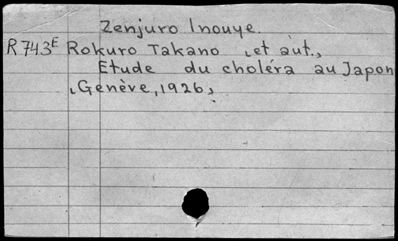 Zenjuro Inouye.
R743E Rokuro Takano (et aut.)
Etude du choléra au Japon
(Genève, 1926)